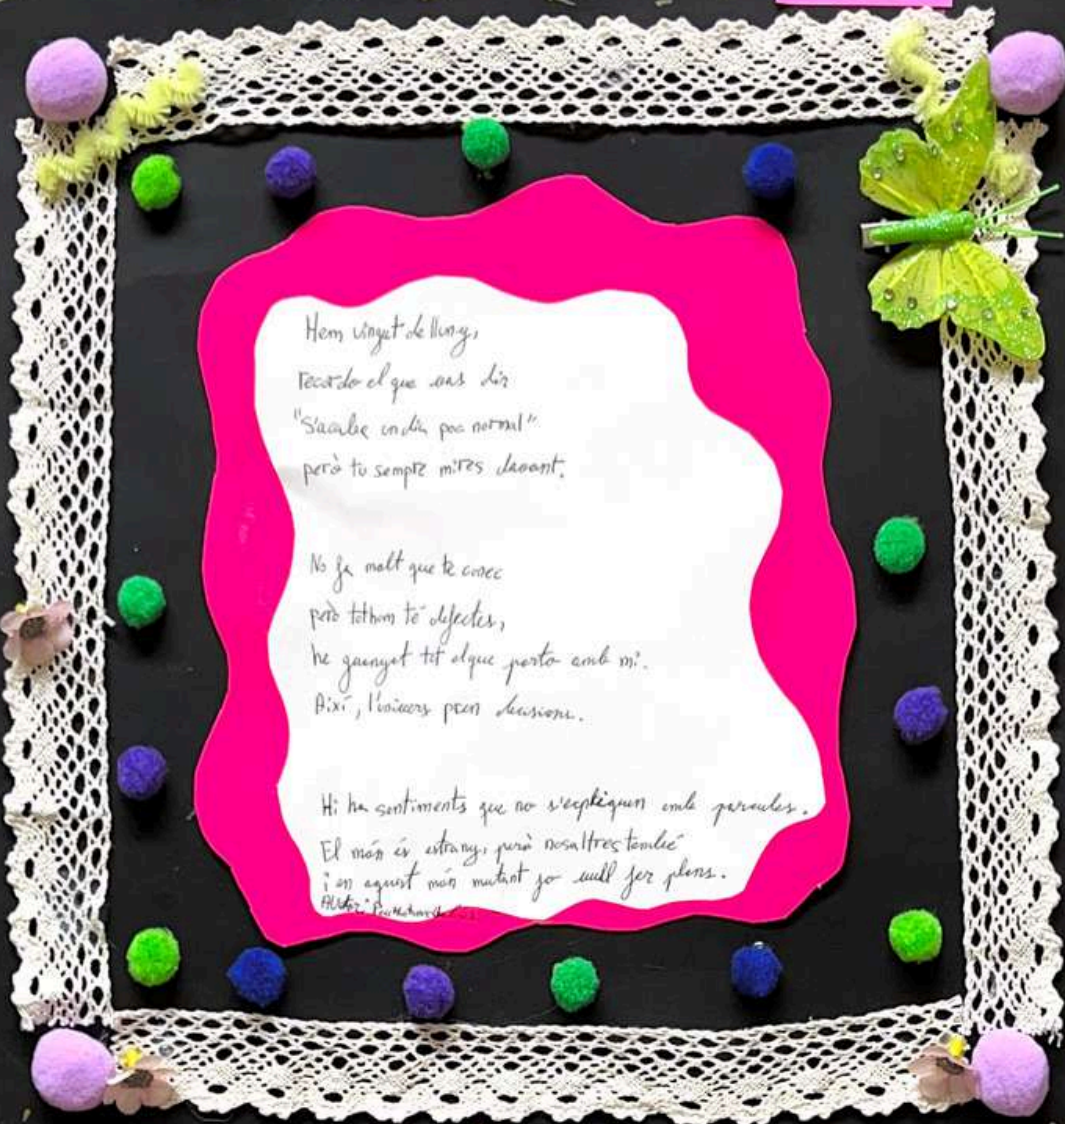 Hem vingut de lluny,
recordo el que vas dir
"S'acabe un dia poc normal"
però tu sempre mires davant.
No fa molt que te conec
però tothom té defectes,
he guanyat tot el que porto amb mi.
Així, l'univers pren decisions.
Hi ha sentiments que no s'expliquen amb paraules.
El món és estrany, però nosaltres també
i en aquest món mutant jo vull fer plans.
Autor: